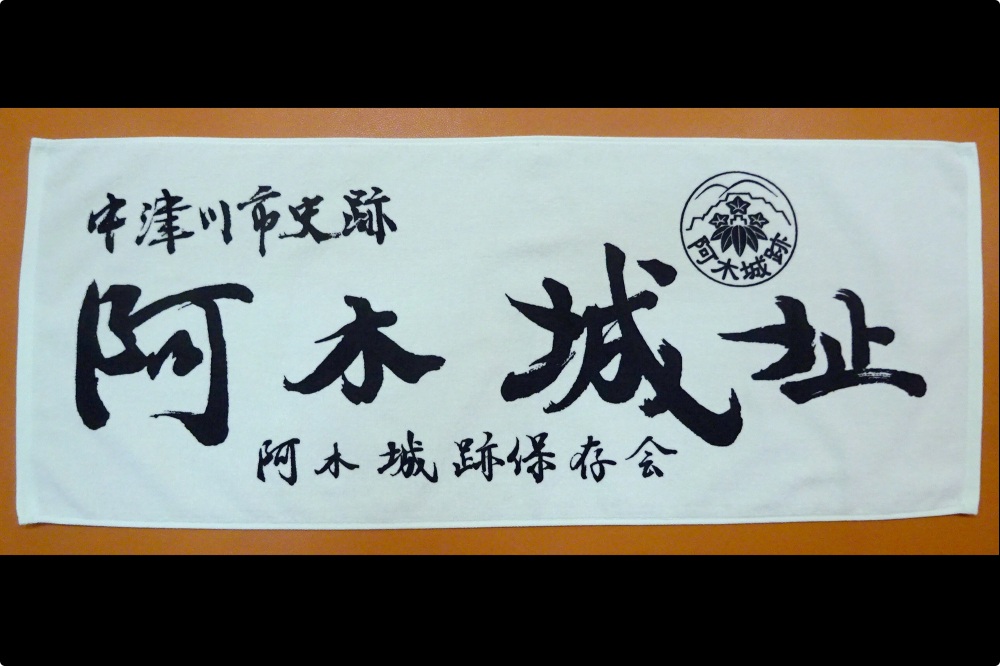 中津川市史跡
阿木城跡
阿木城址
阿木城跡保存会